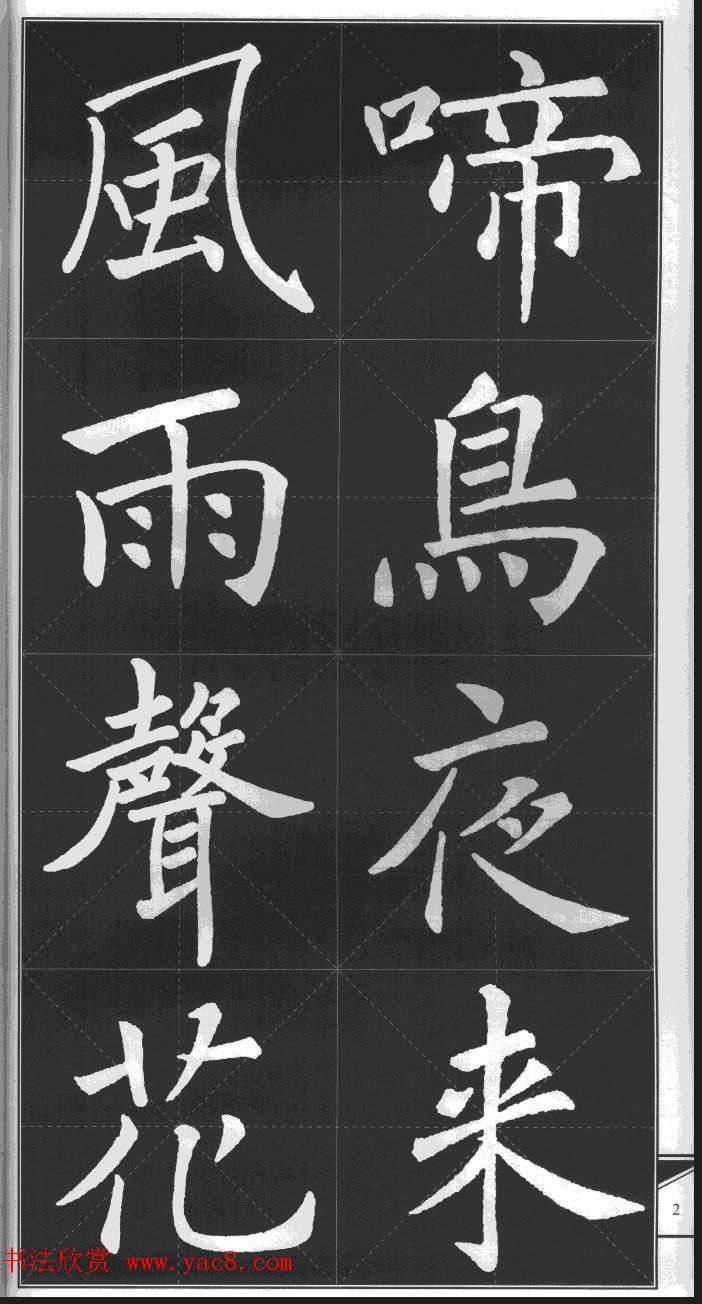 啼鳥夜来
風雨聲花
2
书法欣赏 www.yac8.com